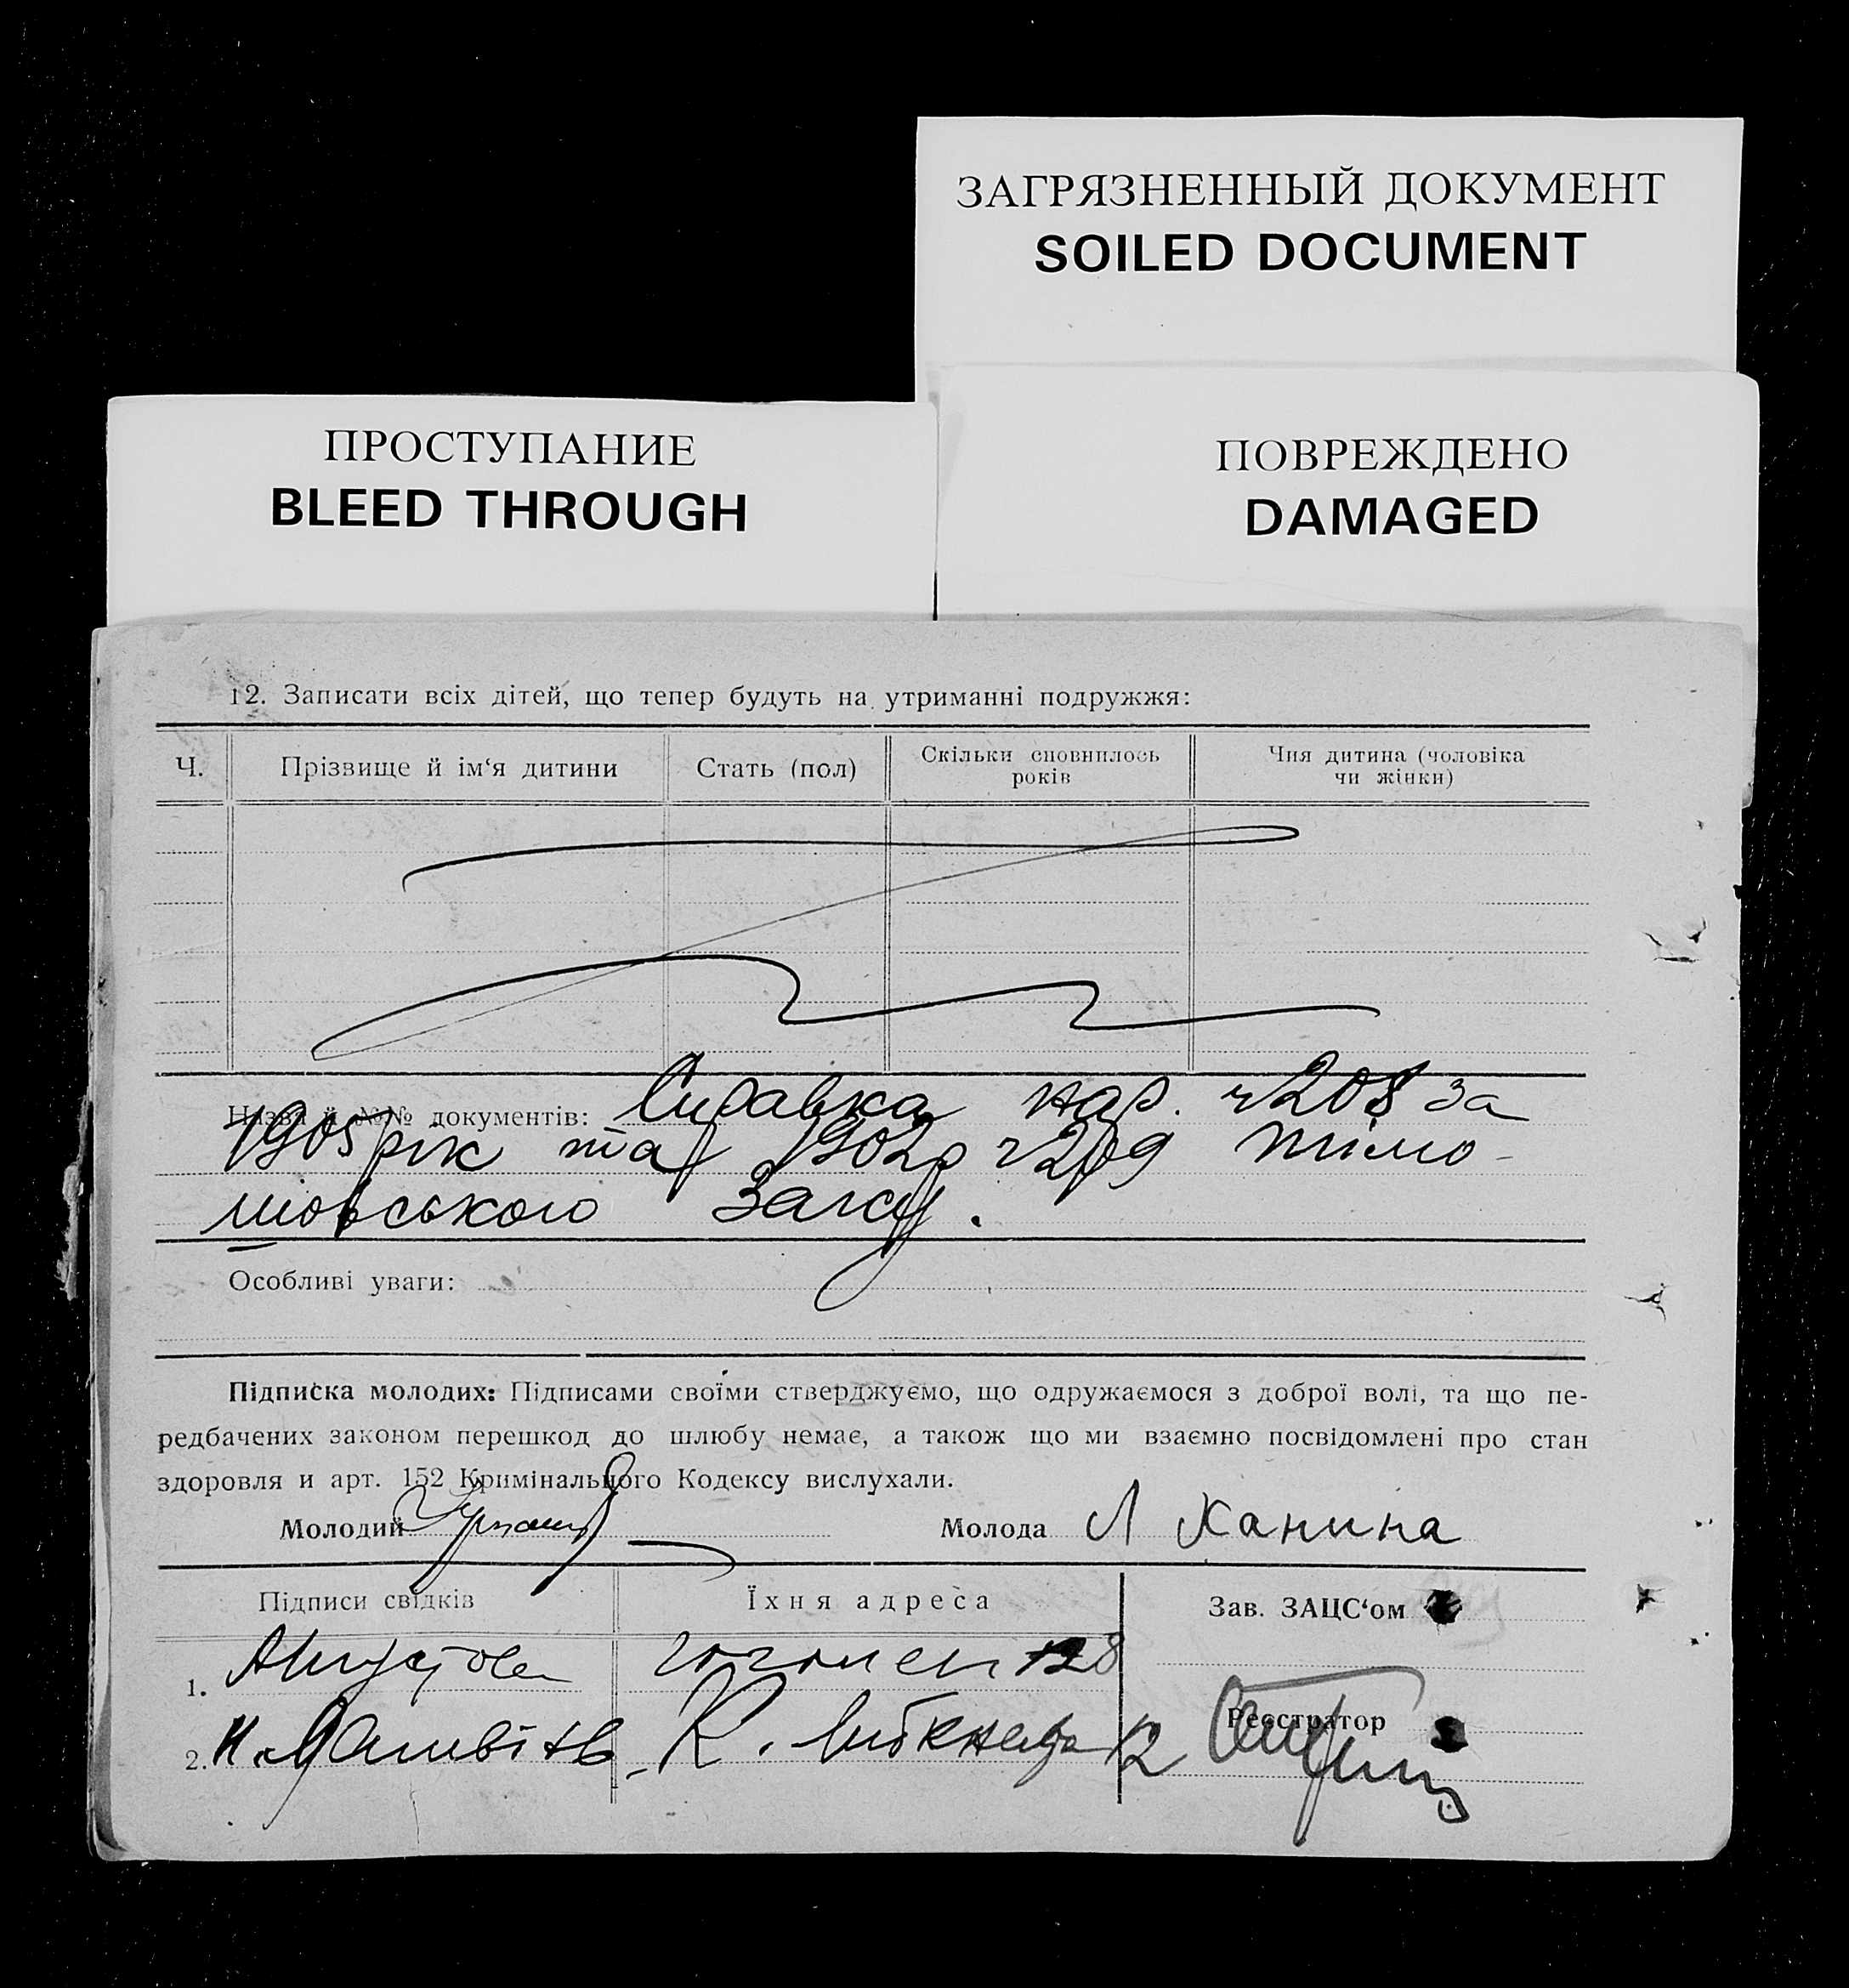 ЗАГРЯЗНЕННЫЙ ДОКУМЕНТ
SOILED DOCUMENT
ПРОСТУПАНИЕ
BLEED THROUGH
ПОВРЕЖДЕНО
DAMAGED
12. Записати всіх дітей, що тепер будуть на утриманні подружжя:
Ч.
Прізвище й ім‘я дитини
Стать (пол)
Скільки сповнилось
років
Чия дитина (чоловіка
чи жінки)
Назва й №№ документів: Справка нар. ч208 за
1905 рік та 1902р ч209 тімо-
шовського Загсу.
Особливі уваги:
Підписка молодих: Підписами своїми стверджуємо, що одружаємося з доброї волі, та що пе-
редбачених законом перешкод до шлюбу немає, а також що ми взаємно посвідомлені про стан
здоровля и арт. 152 Кримінального Кодексу вислухали.
Молодий
Молода Л Канина
Підписи свідків
Їхня адреса
Зав. ЗАЦС‘ом
1.
Реєстратор
2. К. Лібкнехта 12